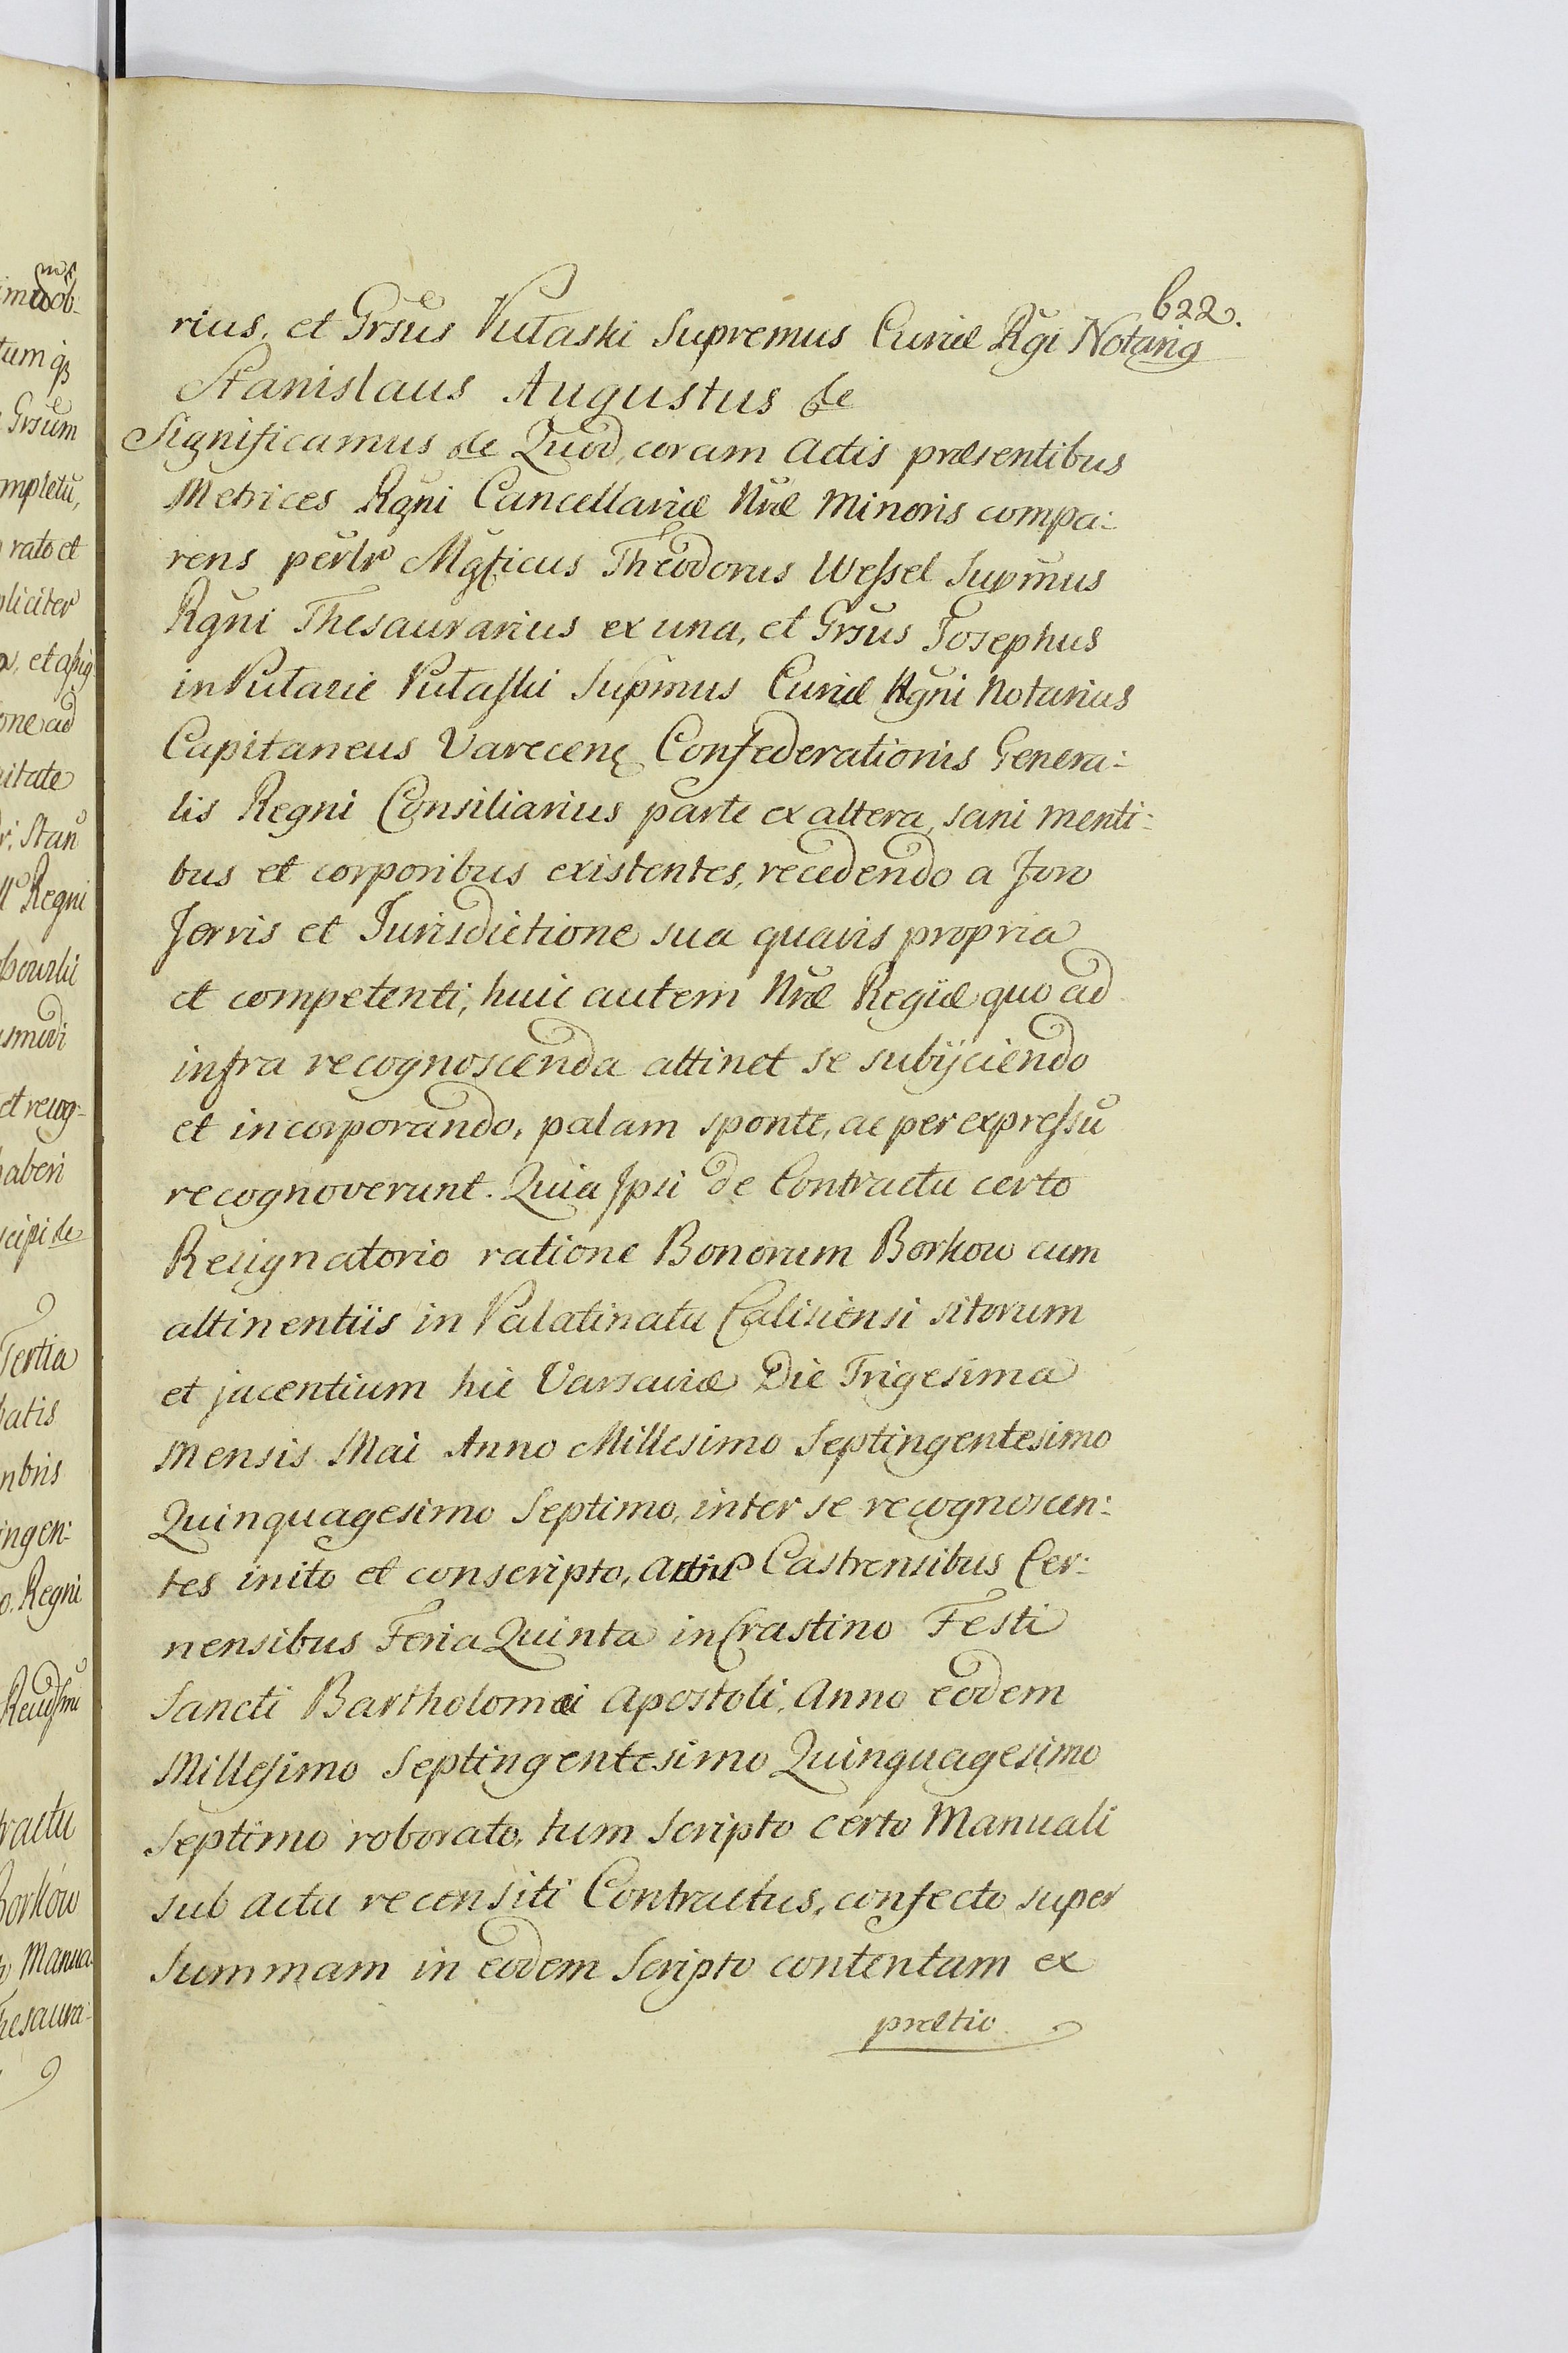 622.
rius, et Grsus Pułaski Supremus Curiæ Rgi Notarig
Stanislaus Augustus &c
Significamus &c Quod, coram Actis præsentibus
Metrices Rgni Cancellariæ Nræ Minoris compa:
rens perlr Mgficus Theodorus Wessel Supmus
Rgni Thesaurarius ex una, et Grsus Josephus
in Pułazie Pułaski Supmus Curiæ Rgni Notarius
Capitaneus Varecen Confederationis Genera:
lis Regni Consiliarius parte ex altera, sani menti:
bus et corporibus existentes, recedendo a Foro
Forris et Jurisdictione sua quavis propria
et competenti, huic autem Nræ Regiæ quo ad
infra recognoscenda attinet se subijciendo
et incorporando, palam sponte, ac per expressũ
recognoverunt. Quia Ipsi de Contractu certo
Resignatorio ratione Bonorum Borkow cum
attinentiis in Palatinatu Calisiensi sitorum
et jacentium hic Varsaviæ Die Trigesima
Mensis Mai Anno Millesimo Septingentesimo
Quinquagesimo Septimo, inter se recognoscen:
tes inito et conscripto, Actisq Castrensibus Cer:
nensibus Feria Quinta in Crastino Festi
Sancti Bartholomæi Apostoli, Anno eodem
Millesimo Septingentesimo Quinquagesimo
Septimo roborato, tum Scripto certo Manuali
sub actu recensiti Contractus, confecto super
Summam in eodem Scripto contentam ex
prætio